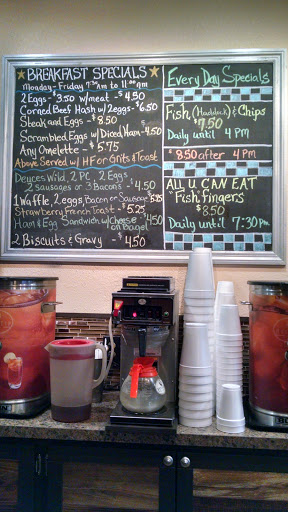 BREAKFAST SPECIALS
Monday - Friday 7:30 AM to 11:00 AM
2 Eggs - $3.50 w/meat - $4.50
Corned Beef Hash w/2 eggs - $6.50
Steak and Eggs - $8.50
Scrambled Eggs w/Diced Ham - 4.50
Any Omelette - $5.75
Above Served w/HF or Grits & Toast
Deuces Wild, 2 PC, 2 Eggs,
2 Sausages or 3 Bacons $4.50
1 Waffle, 2 eggs, Bacon or Sausage
Strawberry French Toast - $5.25
Ham & Egg Sandwich w/Cheese
on Bagel
$4.50
2 Biscuits & Gravy - $4.50
Every Day Specials
Fish, (Haddock) & Chips
$7.50
Daily until 4 PM
$8.50 after 4 PM
ALL U CAN EAT
"Fish fingers
$8.50
Daily until 7:30 PM